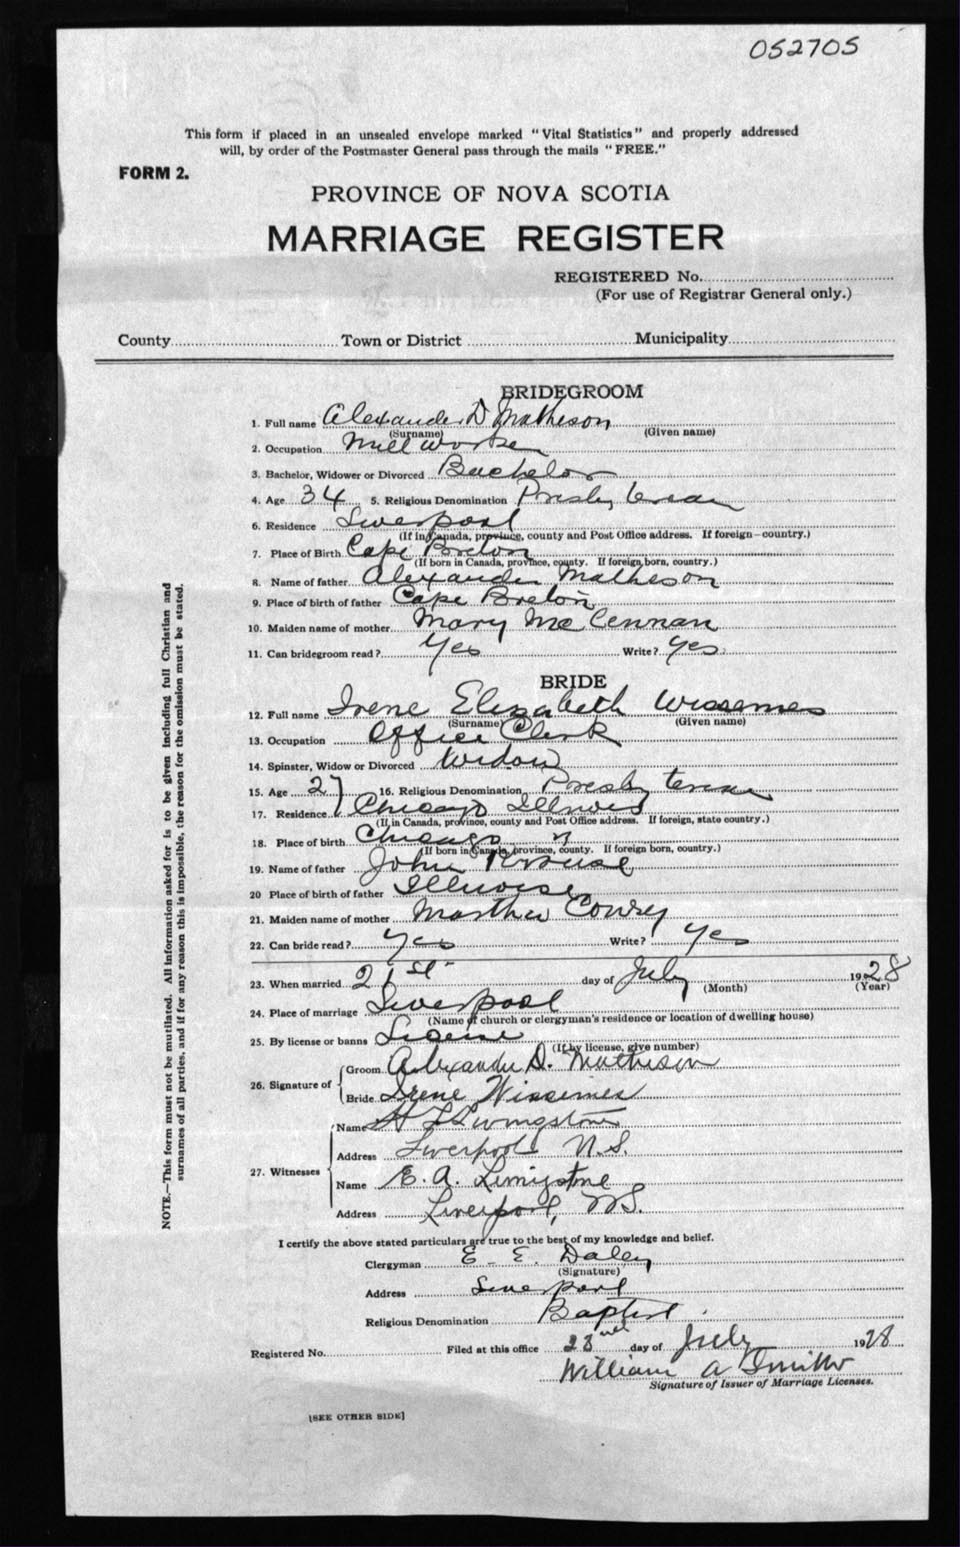 052705
This form if placed in an unsealed envelope marked "Vital Statistics" and properly addressed
will, by order of the Postmaster General pass through the mails "FREE."
FORM 2.
PROVINCE OF NOVA SCOTIA
MARRIAGE REGISTER
REGISTERED No.
(For use of Registrar General only.)
County Town or District Municipality
BRIDEGROOM
1. Full name Alexander D Matheson
(Surname) (Given name)
2. Occupation Mill worker
3. Bachelor, Widower or Divorced Bachelor
4. Age 34 5. Religious Denomination Presbyterian
6. Residence Liverpool
(If in Canada, province, county and Post Office address. If foreign—country.)
7. Place of Birth Cape Breton
(If born in Canada, province, county. If foreign born, country.)
8. Name of father Alexander Matheson
9. Place of birth of father Cape Breton
10. Maiden name of mother Mary McLennan
11. Can bridegroom read? Yes Write? Yes
BRIDE
12. Full name Irene Elizabeth Wissemes
(Surname) (Given name)
13. Occupation Office Clerk
14. Spinster, Widow or Divorced Widow
15. Age 27 16. Religious Denomination Presbyterian
17. Residence Chicago Illinois
(If in Canada, province, county and Post Office address. If foreign, state country.)
18. Place of birth Chicago "
(If born in Canada, province, county. If foreign born, country.)
19. Name of father John Krouse
20 Place of birth of father Illinoise
21. Maiden name of mother Martha Conrey
22. Can bride read? Yes Write? Yes
23. When married 21st day of July 1928
(Month) (Year)
24. Place of marriage Liverpool
(Name of church or clergyman's residence or location of dwelling house)
25. By license or banns License
(If by license, give number)
26. Signature of Groom Alexander D. Matheson
Bride Irene Wissemes
27. Witnesses Name H L Livingstone
Address Liverpool N.S.
Name E. A. Livingstone
Address Liverpool, N.S.
I certify the above stated particulars are true to the best of my knowledge and belief.
Clergyman E. E. Daley
(Signature)
Address Liverpool
Religious Denomination Baptist.
Registered No. Filed at this office 23rd day of July 1928
William A Smith
Signature of Issuer of Marriage Licenses.
[SEE OTHER SIDE]
NOTE.—This form must not be mutilated. All information asked for is to be given including full Christian and
surnames of all parties, and if for any reason this is impossible, the reason for the omission must be stated.